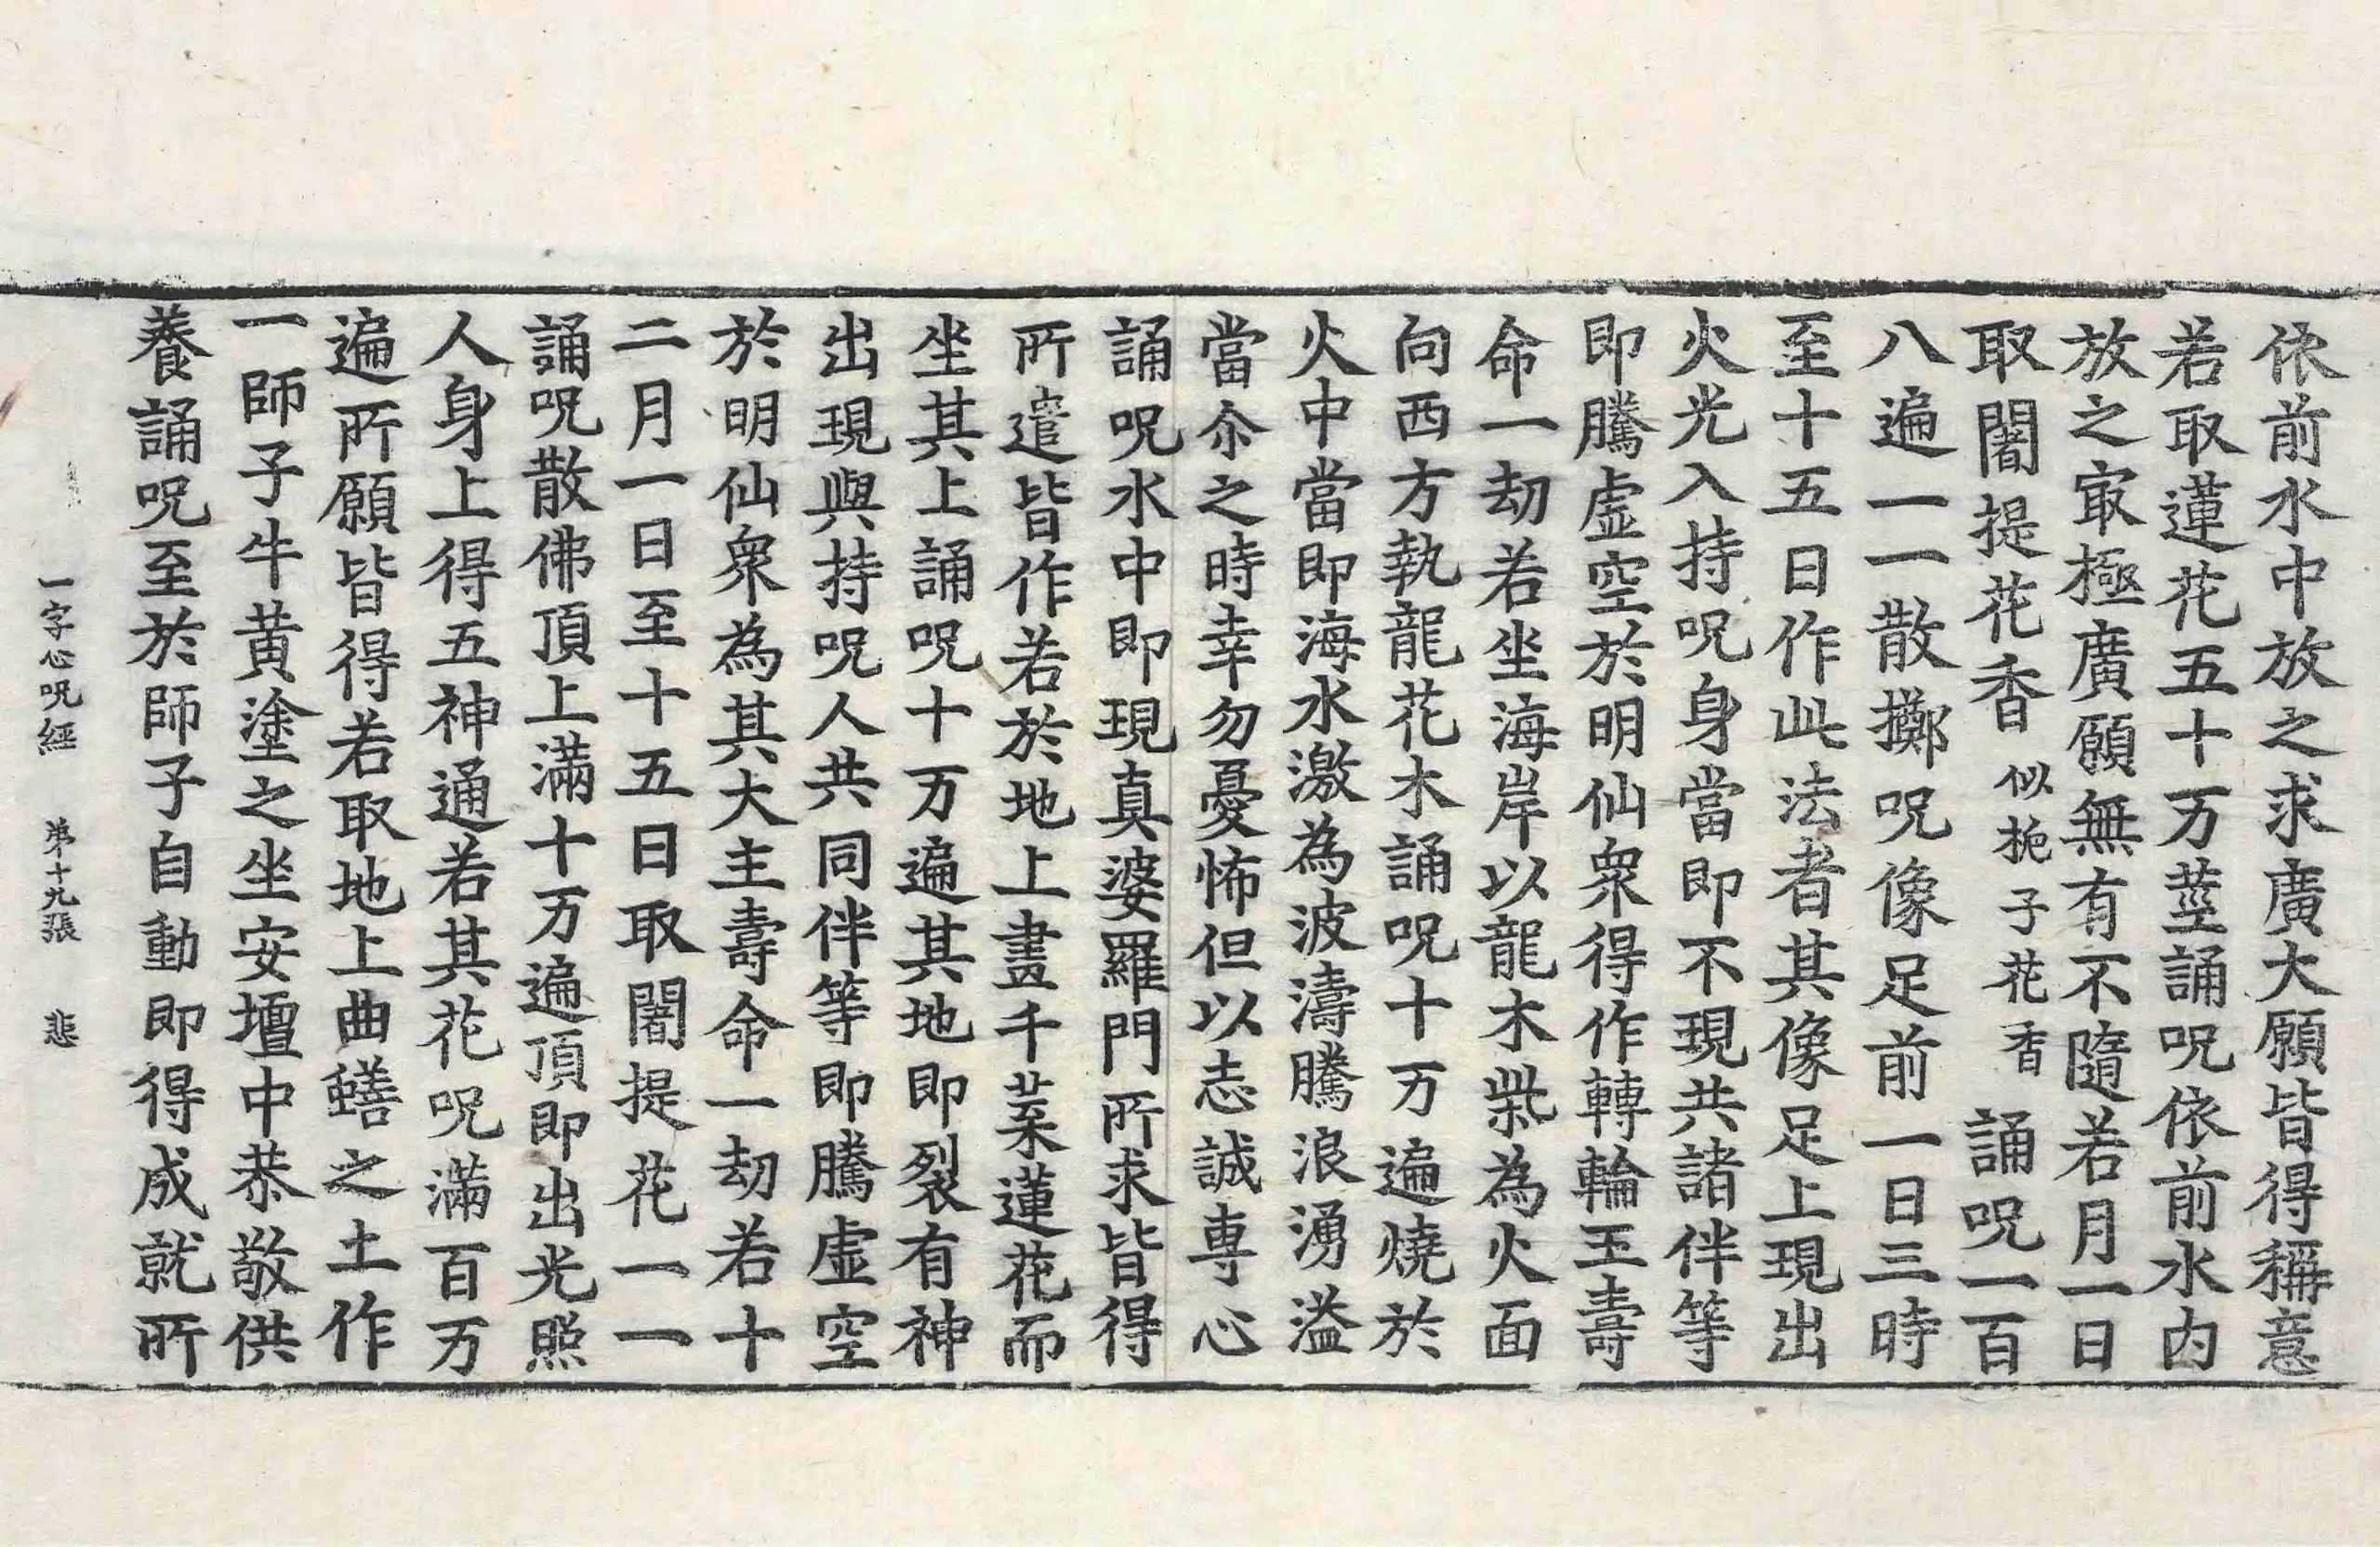 依前水中放之求廣大願皆得稱意
若取蓮花五十万莖誦呪依前水内
放之㝡極廣願無有不隨若月一日
取闍提花香似梔子花香誦呪一百
八遍一一散擲呪像足前一日三時
至十五日作此法者其像足上現出
火光入持呪身當即不現共諸伴等
即騰虛空於明仙衆得作轉輪王壽
命一劫若坐海岸以龍木柴為火面
向西方執龍花木誦呪十万遍燒於
火中當即海水激為波濤騰浪湧溢
當尒之時幸勿憂怖但以志誠專心
誦呪水中即現真婆羅門所求皆得
所遣皆作若於地上畫千葉蓮花而
坐其上誦呪十万遍其地即裂有神
出現與持呪人共同伴等即騰虛空
於明仙衆為其大主壽命一劫若十
二月一日至十五日取闍提花一一
誦呪散佛頂上滿十万遍頂即出光照
人身上得五神通若其花呪滿百万
遍所願皆得若取地上曲蟮之土作
一師子牛黄塗之坐安壇中恭敬供
養誦呪至於師子自動即得成就所
一字心呪經 弟十九張 悲